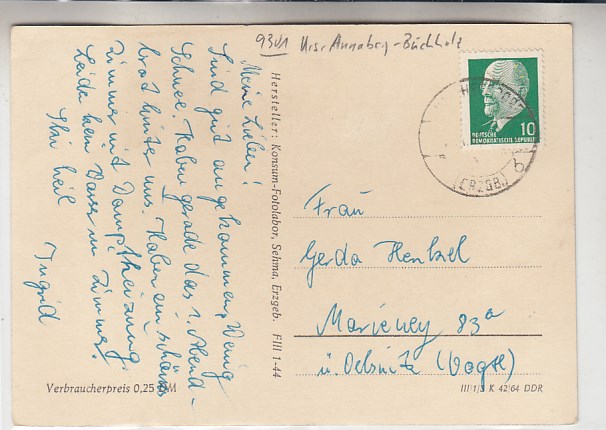 9341 Krsr Annaberg-Buchholz
Meine Lieben!
Sind gut angekommen, Wenig
Schnee. Haben gerade das 1. Abend-
brot hinter uns. Haben ein schönes
Zimmer mit Dampfheizung.
Leider kein Wasser im Zimmer.
Ski heil
Ingrid
Hersteller: Konsum-Fotolabor, Sehma, Erzgeb. FIII 1-44
Verbraucherpreis 0,25 DM
10
DEUTSCHE
DEMOKRATISCHE REPUBLIK
(ERZGB.)
b
Frau
Gerda Henkel
Marieney 83a
ü. Oelsnitz (Vogtl)
III 1/3 K 42/64 DDR